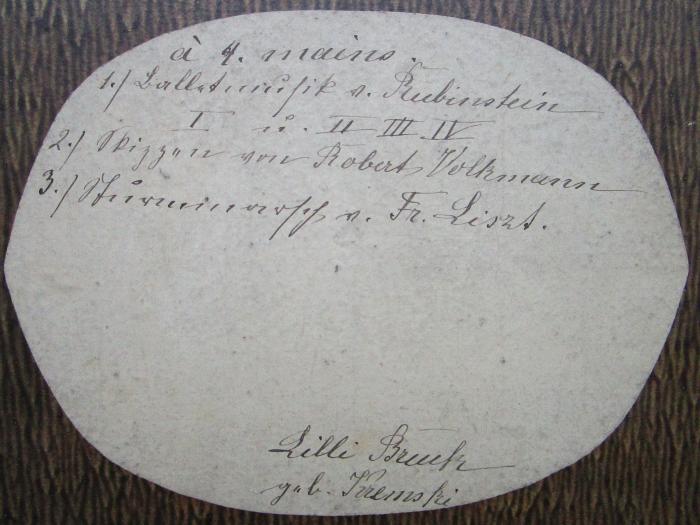 à 4. mains.
1.) Balletmusik v. Rubinstein
I u. II III IV
2.) Skizzen von Robert Volkmann
3.) Sturmmarsch v. Fr. Liszt.
Lilli Bruck
geb. Kremski